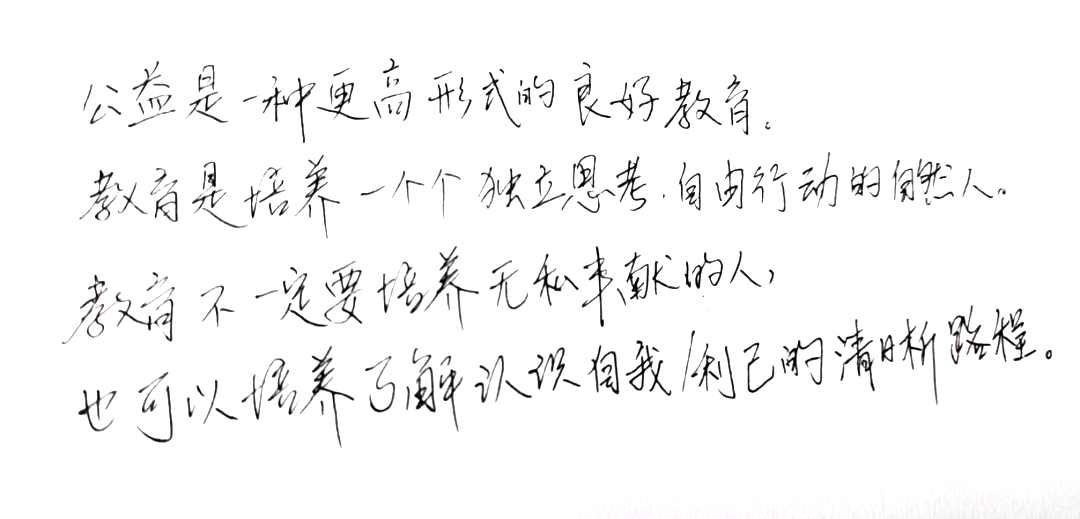 公益是一种更高形式的良好教育。
教育是培养一个个独立思考、自由行动的自然人。
教育不一定要培养无私奉献的人，
也可以培养了解认识自我/利己的清晰路程。